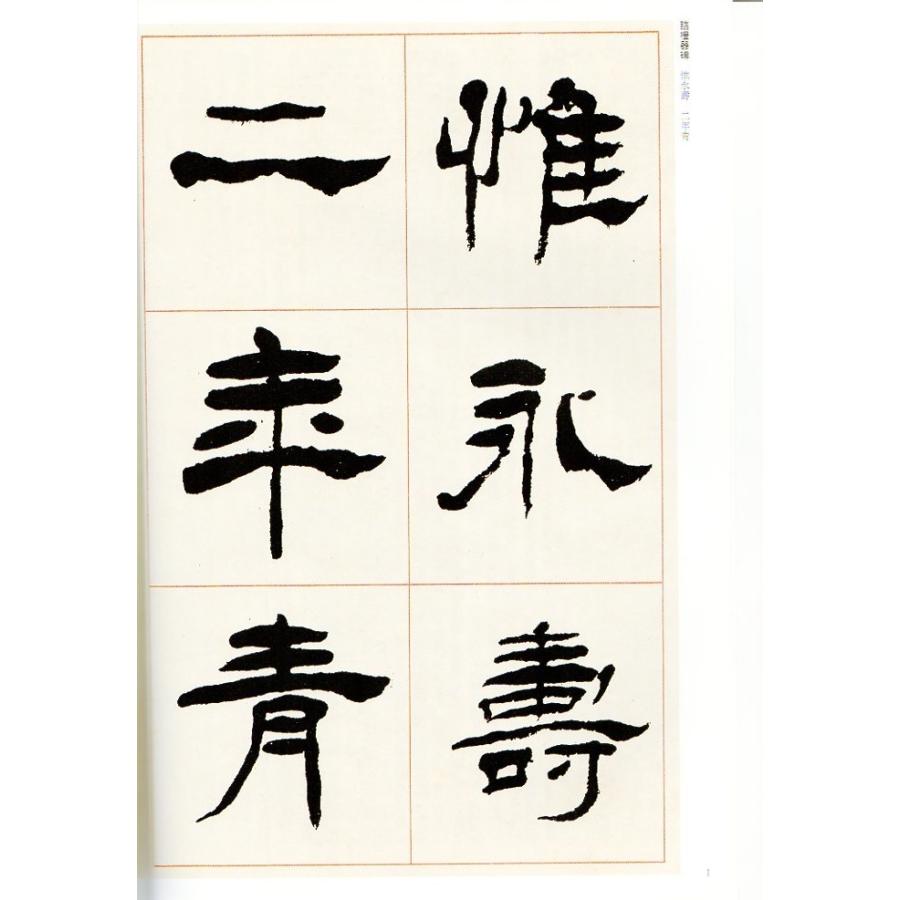 臨禮器碑 惟永壽 二年青
惟永壽
二年青
1